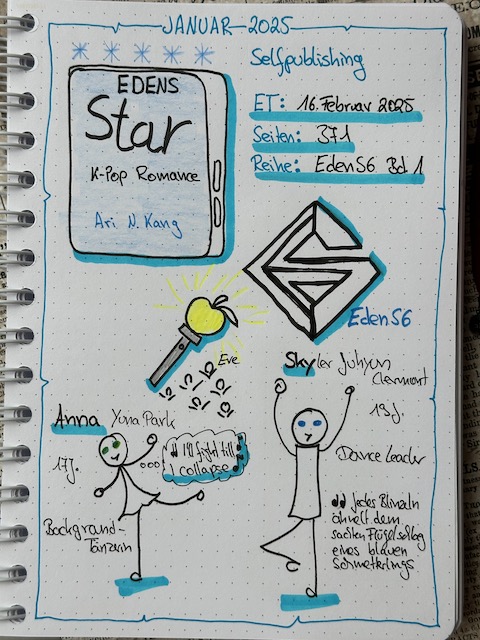 JANUAR - 2025
Selfpublishing
EDENS
Star
K-Pop Romance
Ari N. Kang
ET: 16. Februar 2025
Seiten: 371
Reihe: EdenS6 Bd 1
EdenS6
Eve
Anna Yuna Park
17J.
♫ I'll fight till
I collapse ♪
Background-
Tänzerin
Skyler Juhyun
Clermont
19J.
Dance Leader
♫ Jedes Blinzeln
ähnelt dem
sachten Flügelschlag
eines blauen
Schmetterlings